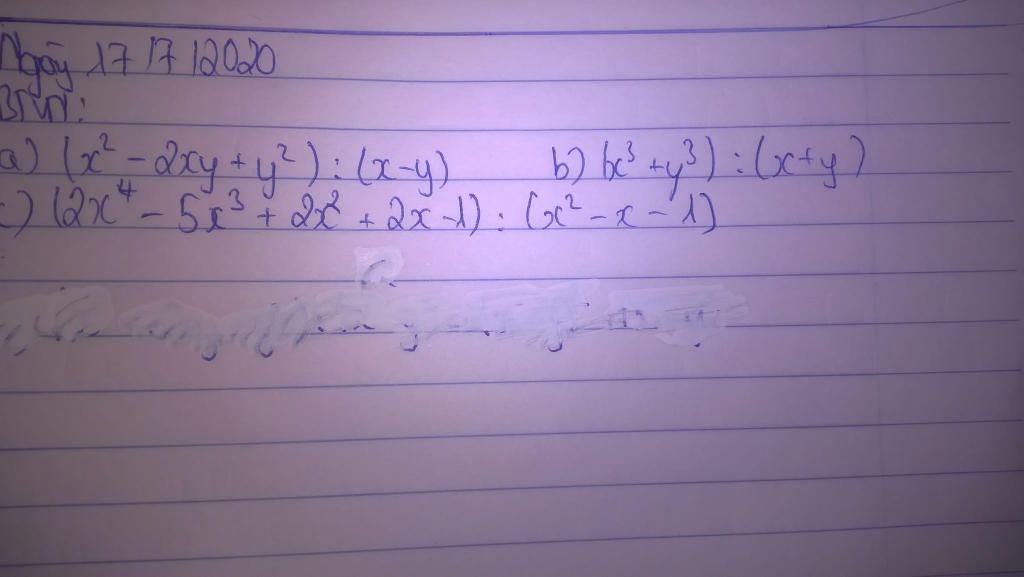 Ngày 17/7/2020
BTVN:
a) (x² - 2xy + y²) : (x-y) b) (x³ + y³) : (x+y)
c) (2x⁴ - 5x³ + 2x² + 2x-1) : (x² - x - 1)